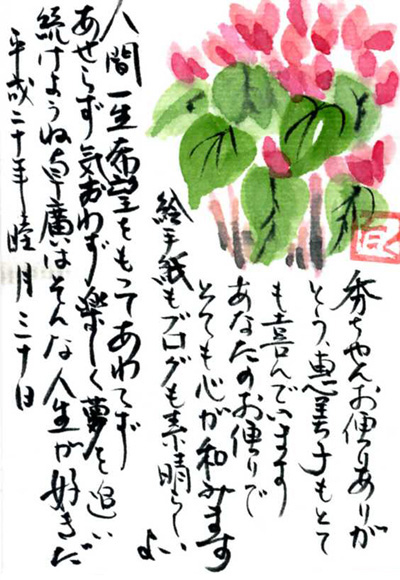 秀ちゃんお便りありが
とう、恵美子もとて
も喜んでいます
あなたのお便りで
とても心が和みます
絵手紙もブログも素晴らしい
よ
人間一生希望をもってあわてず
あせらず気おわず楽しく夢を追い
続けようね卓廣はそんな人生が好きだ
平成二十年睦月三十日